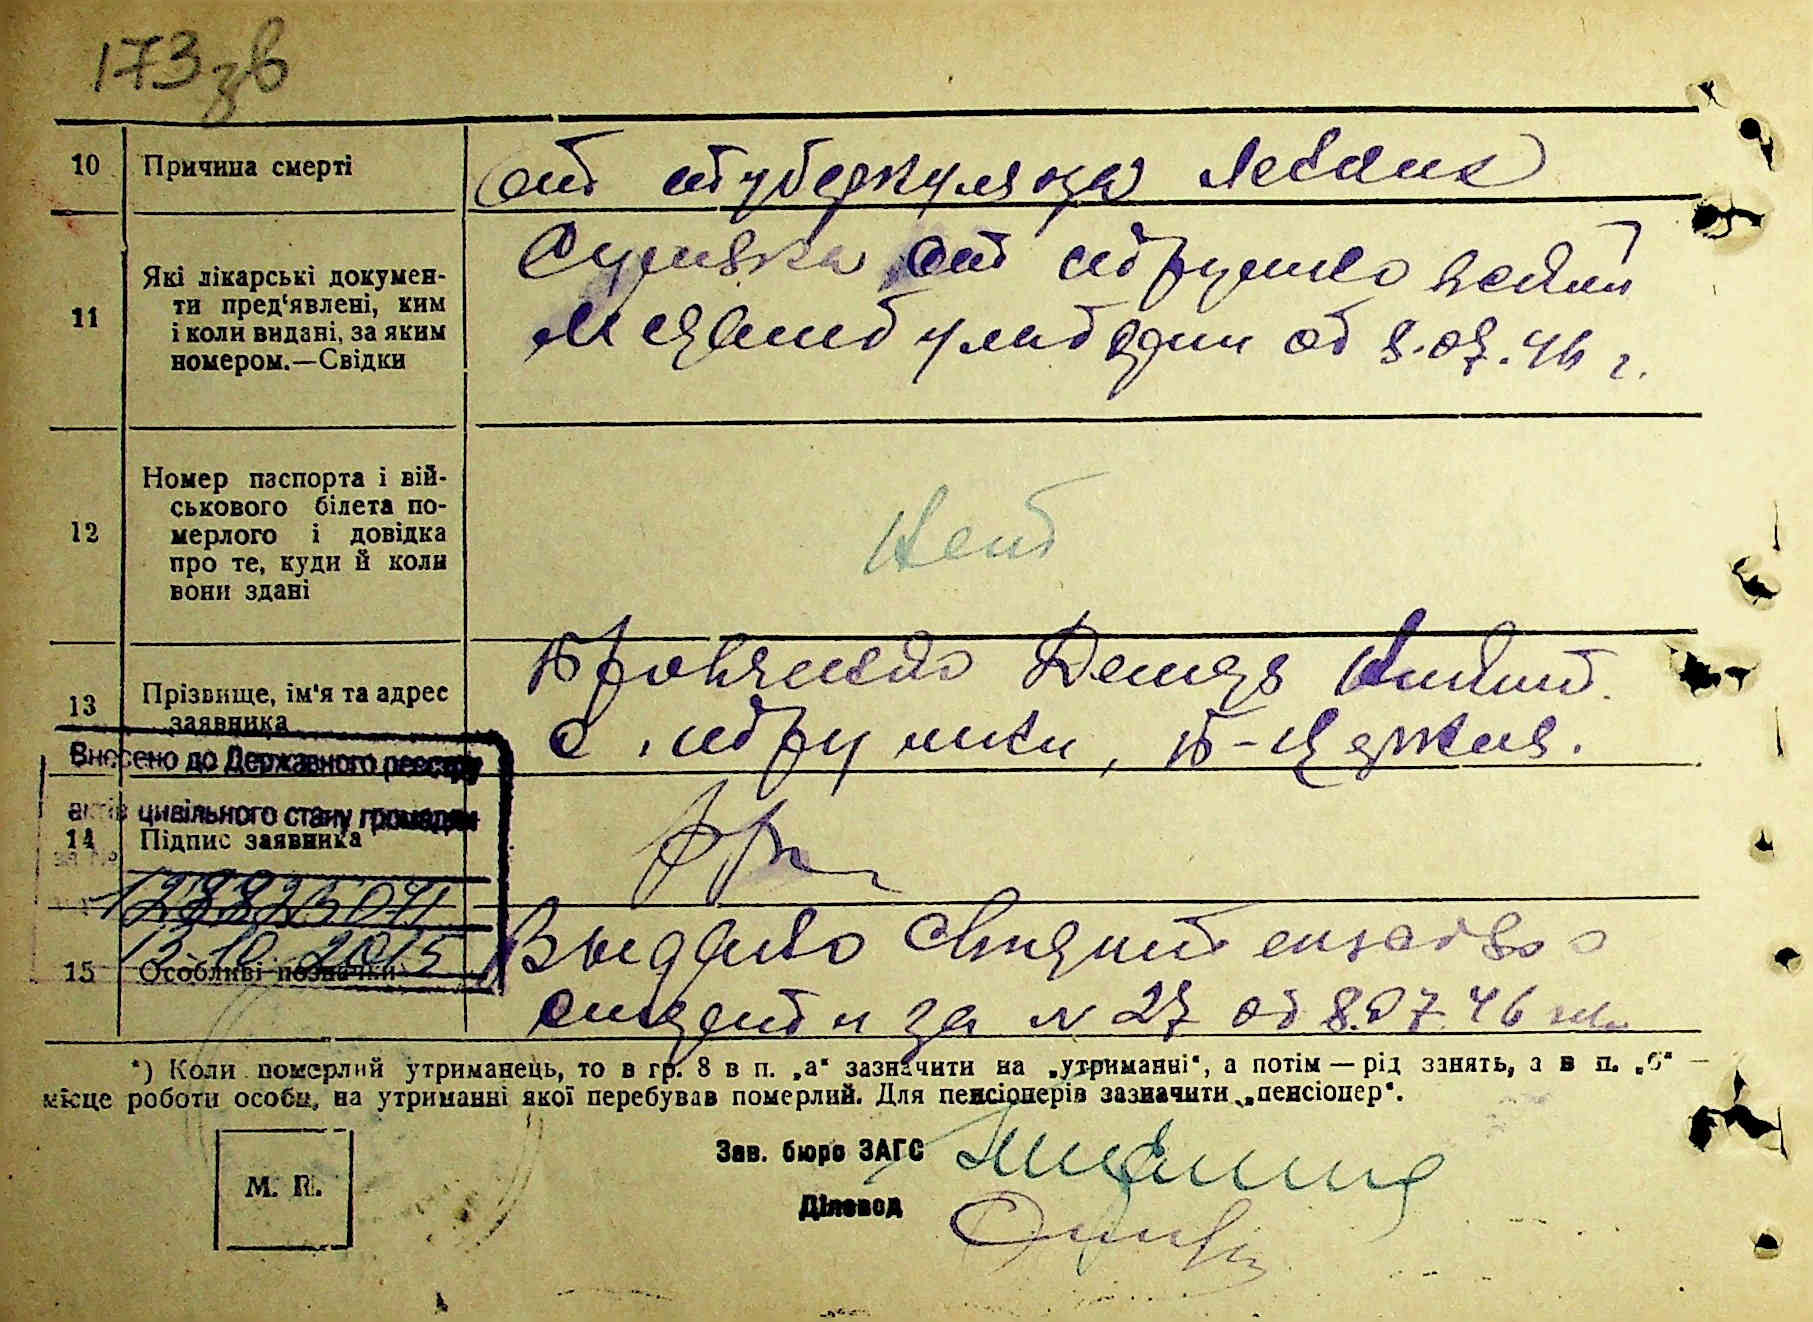 173зв
10 Причина смерті
от туберкуляза легких
11 Які лікарські докумен-
ти пред'явлені, ким
і коли видані, за яким
номером.—Свідки
Справка от
от 8.07.46 г.
12 Номер паспорта і вій-
ськового білета по-
мерлого і довідка
про те, куди й коли
вони здані
Нет
13 Прізвище, ім'я та адрес
заявника
с. Б-Церков.
Внесено до Державного реєстру
актів цивільного стану громадян
14 Підпис заявника
за №
13.10.2015
15 Особливі позначки
Выдано свидетельство о
смерти за N 27 от 8.07.46
*) Коли померлий утриманець, то в гр. 8 в п. „а“ зазначити на „утриманні“, а потім — рід занять, а в п. „б“ —
місце роботи особи, на утриманні якої перебував померлий. Для пенсіонерів зазначити „пенсіонер“.
Зав. бюро ЗАГС
М. П.
Діловод